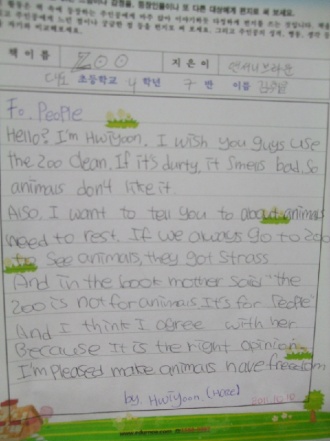 책 이름 ZOO 지은이 앤서니브라운
초등학교 4 학년 7 반 이름
Fo. People
Hello? I'm HwiYoon. I wish you guys use
the zoo clean. If it's durty, it smers bad. so
animars don't like it.
Also, I want to tell you to about animars
need to rest. If we always go to zoo
to see animars, they got strass
And in the book mother said "the
zoo is not for animars. It's for People"
And I think I agree with her
Because It is the right opinian.
I'm pleased make animars have freedom
by. HwiYoon. (Hose)